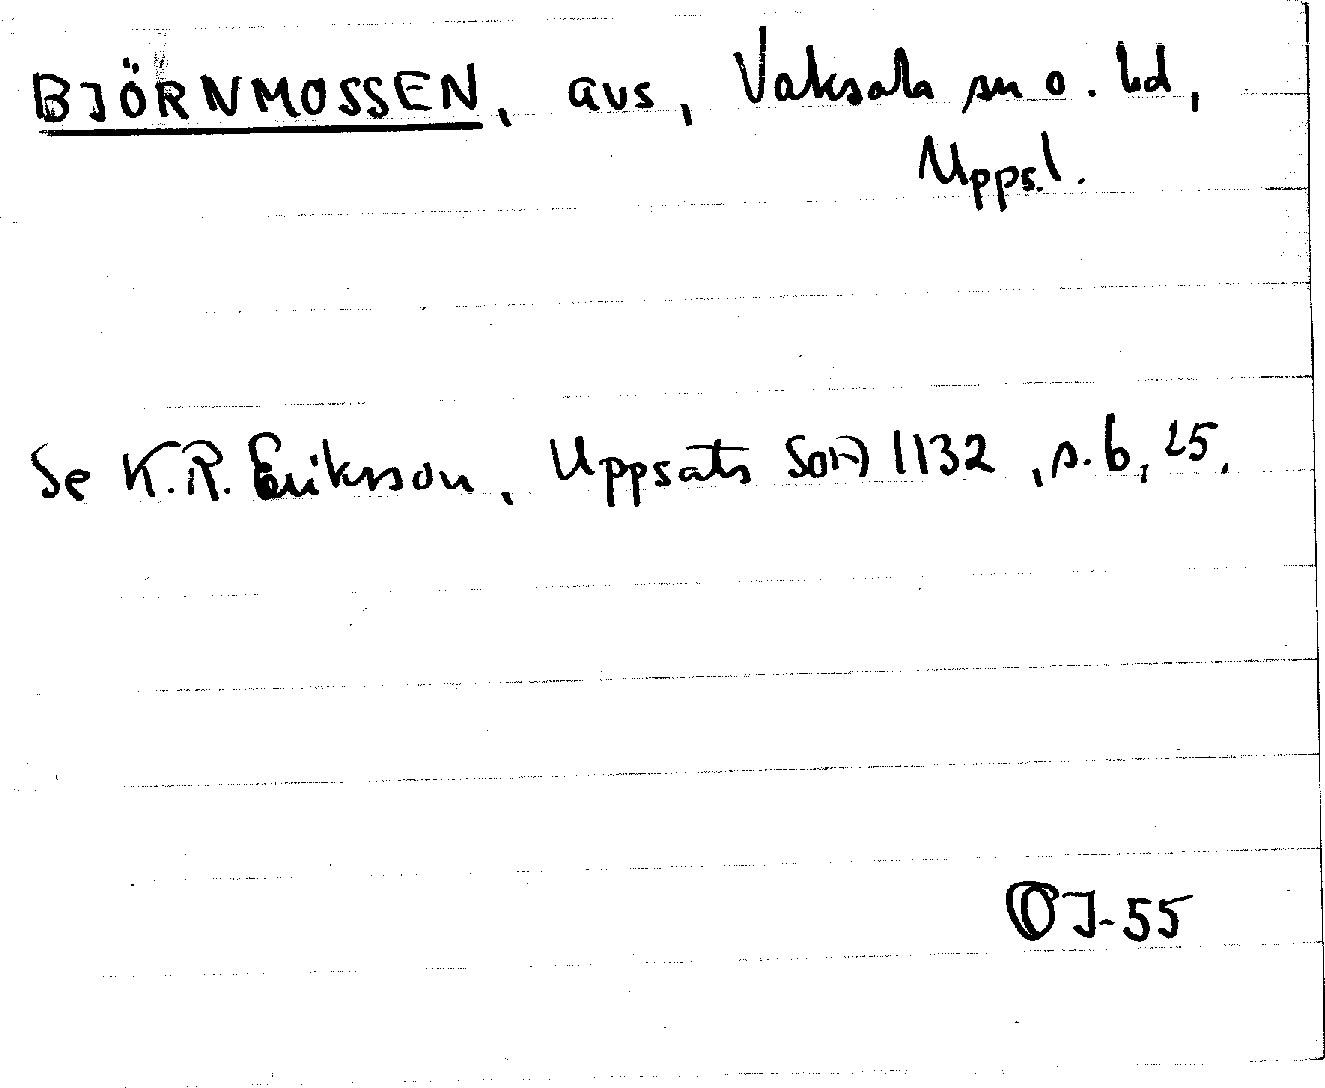 BJÖRNMOSSEN, avs, Vaksala sn o. hd,
Uppsl.
Se K.R. Eriksson, Uppsats SOA 1132, s. 6, 25.
OJ-55